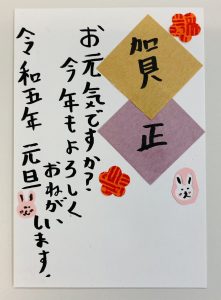 賀
正
お元気ですか？
今年もよろしく
おねがいします．
令和五年 元旦